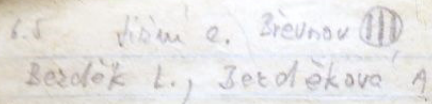 6.5 e. Břevnov III
Bezděk L., Bezděková A